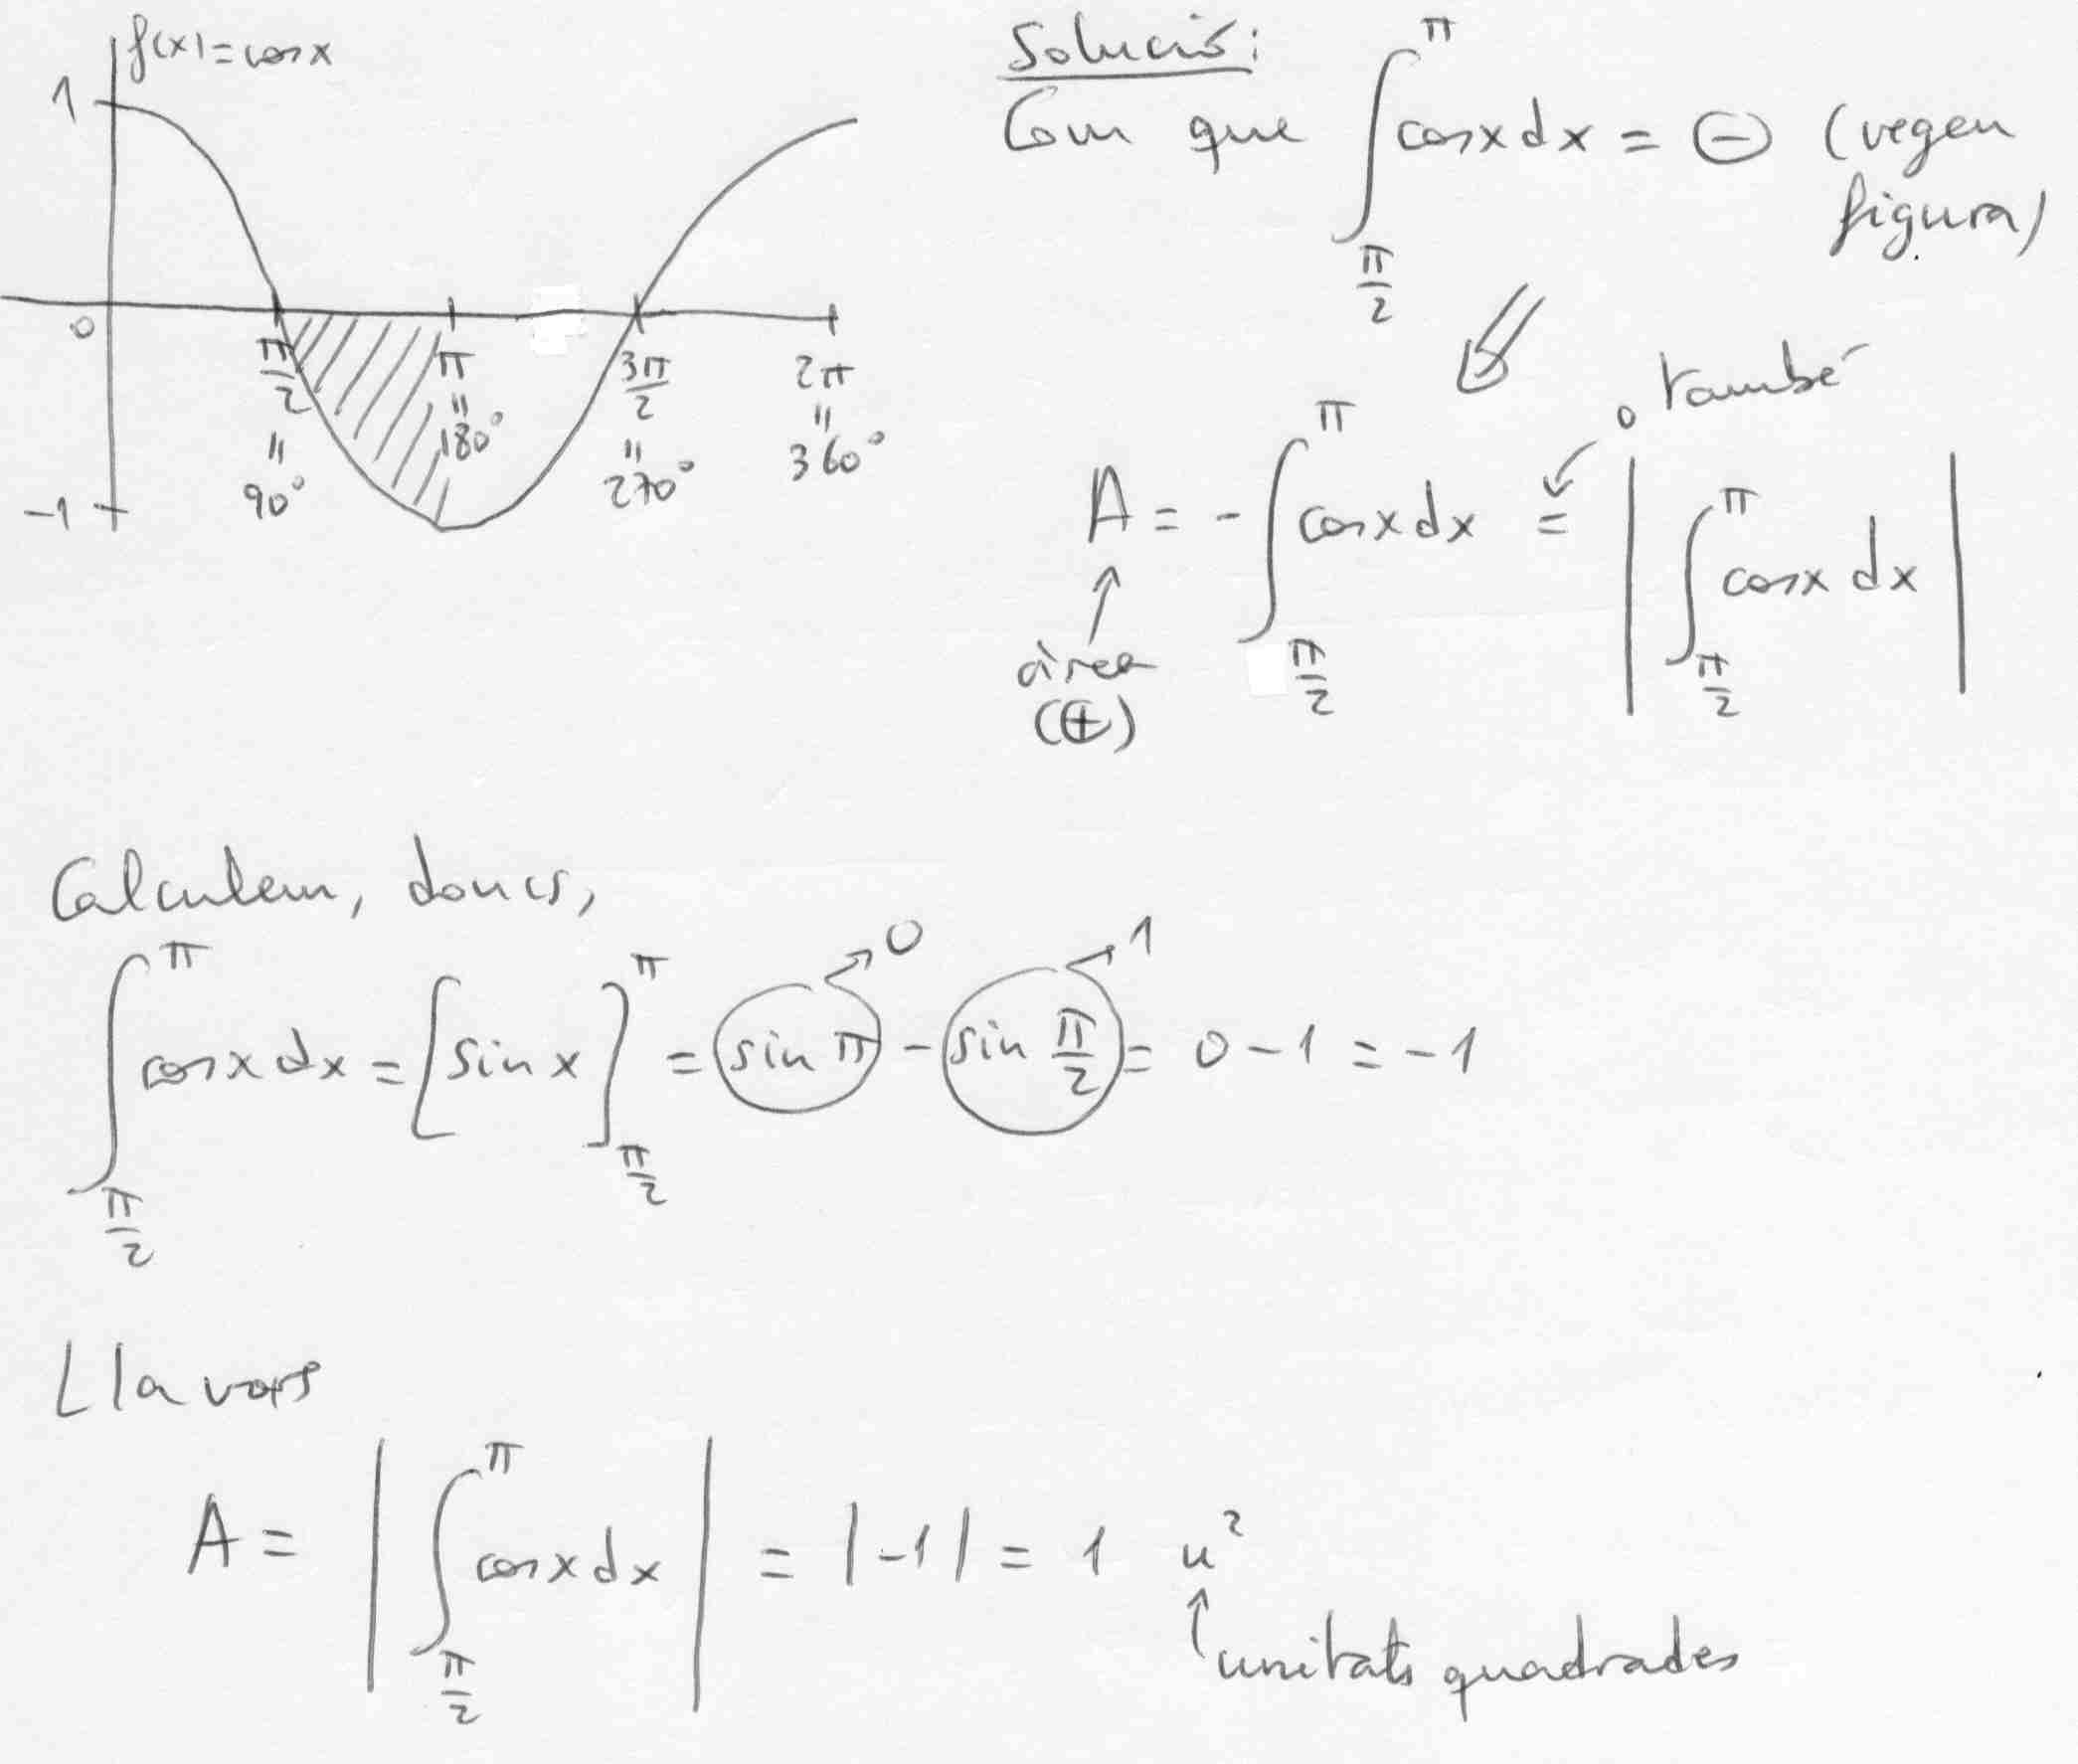 f(x)=cosx
1
0
-1
π/2
=
90°
π
=
180°
3π/2
=
270°
2π
=
360°
Solució:
Com que ∫_{π/2}^{π} cosx dx = ⊖ (vegeu
figura)
A = -∫_{π/2}^{π} cosx dx = |∫_{π/2}^{π} cosx dx|
o també
àrea
(⊕)
Calculem, doncs,
∫_{π/2}^{π} cosx dx = [sin x]_{π/2}^{π} = sin π - sin π/2 = 0 - 1 = -1
0
1
Llavors
A = |∫_{π/2}^{π} cosx dx| = |-1| = 1 u²
unitats quadrades